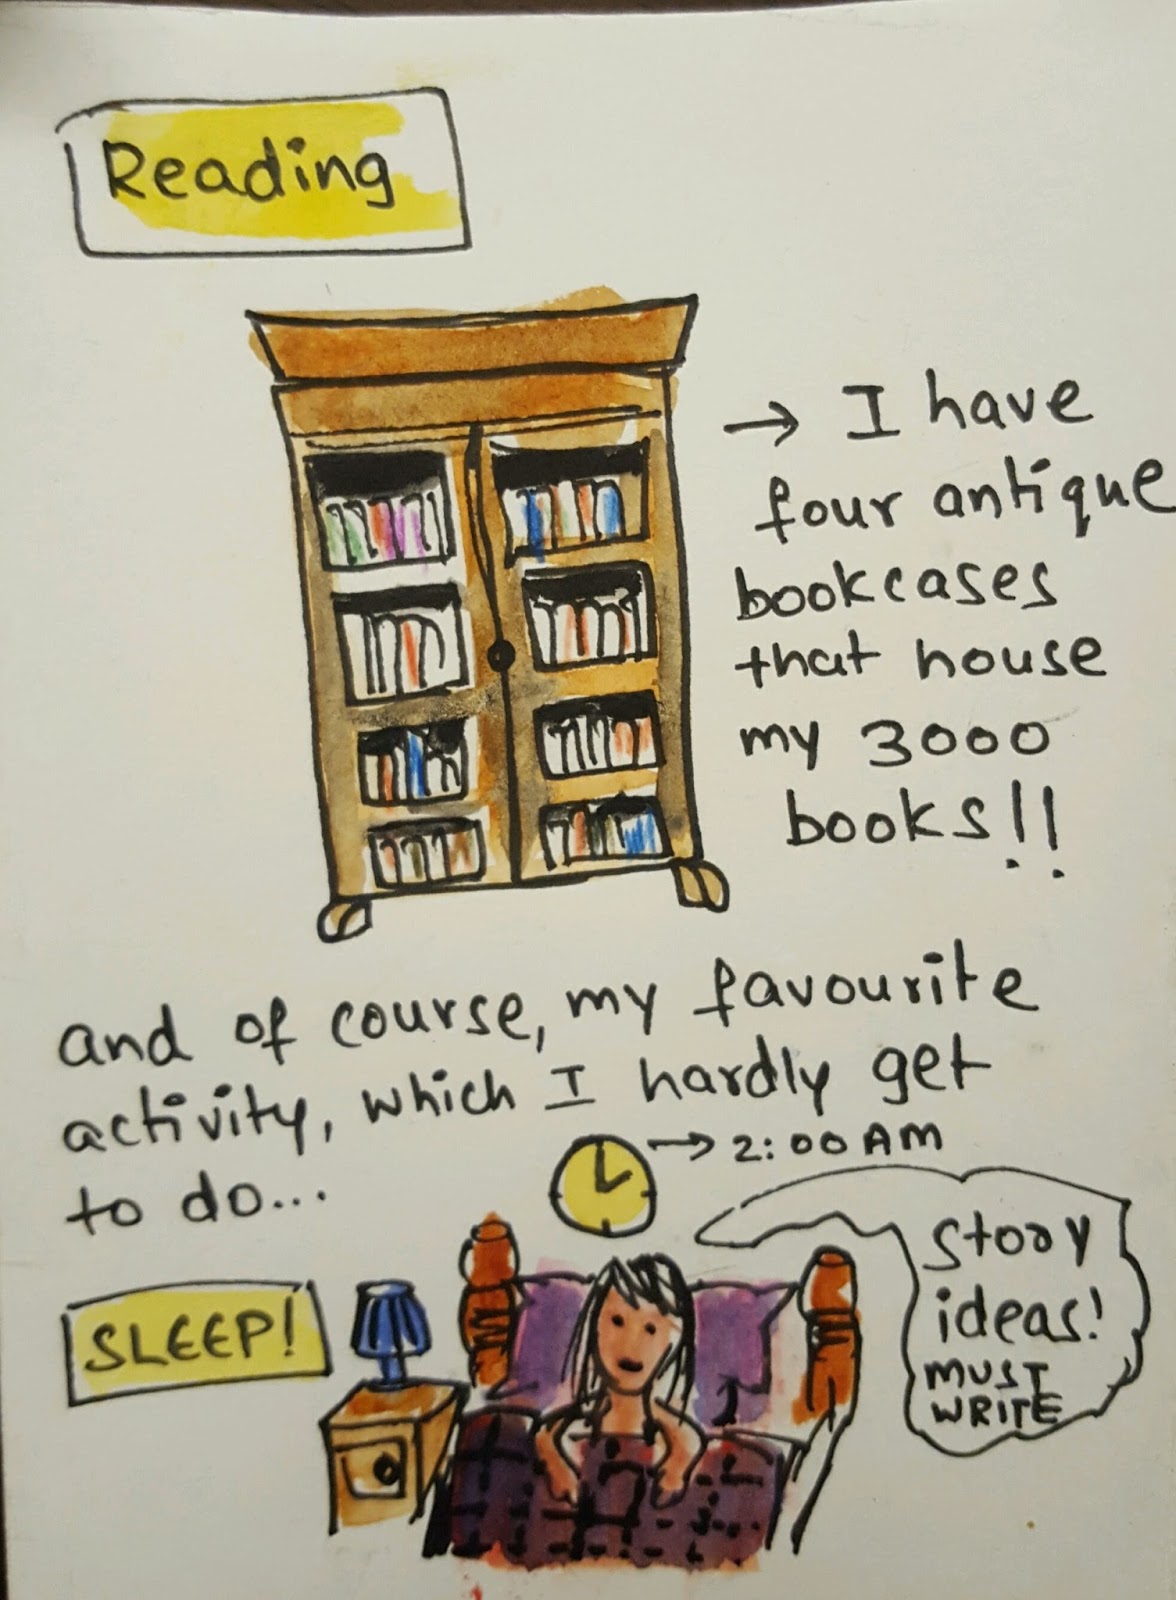 Reading
→ I have
four antique
bookcases
that house
my 3000
books!!
and of course, my favourite
activity, which I hardly get
to do...
→ 2:00 AM
SLEEP!
Story
ideas!
MUST
WRITE